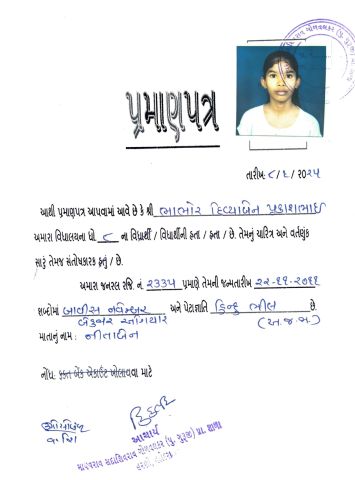 પ્રમાણપત્ર
તારીખ ૮/૬/૨૦૨૫
આથી પ્રમાણપત્ર આપવામાં આવે છે કે શ્રી ભાભોર દિવ્યાબેન પ્રકાશભાઈ
અમારા વિદ્યાલયના ધો ૮ ના વિદ્યાર્થી / વિદ્યાર્થીની હતા / હતા / છે. તેમનું ચારિત્ર અને વર્તણુંક
સારું તેમજ સંતોષકારક હતું / છે.
અમારા જનરલ રજિ. નં ૨૩૩૫ પ્રમાણે તેમની જન્મતારીખ ૨૨-૧૧-૨૦૧૧
શબ્દોમાં બાવીસ નવેમ્બર અને પેટાજ્ઞાતિ હિન્દુ ભીલ છે.
બેહજાર અગિયાર (અ.જ.જા.)
માતાનું નામ : નીતાબેન
નોંધ. ફક્ત બેંક એકાઉન્ટ ખોલાવવા માટે
આચાર્ય
માધવરાવ સદાશિવરાવ ગોળવલકર (પુ. ગુરૂજી) પ્રા. શાળા